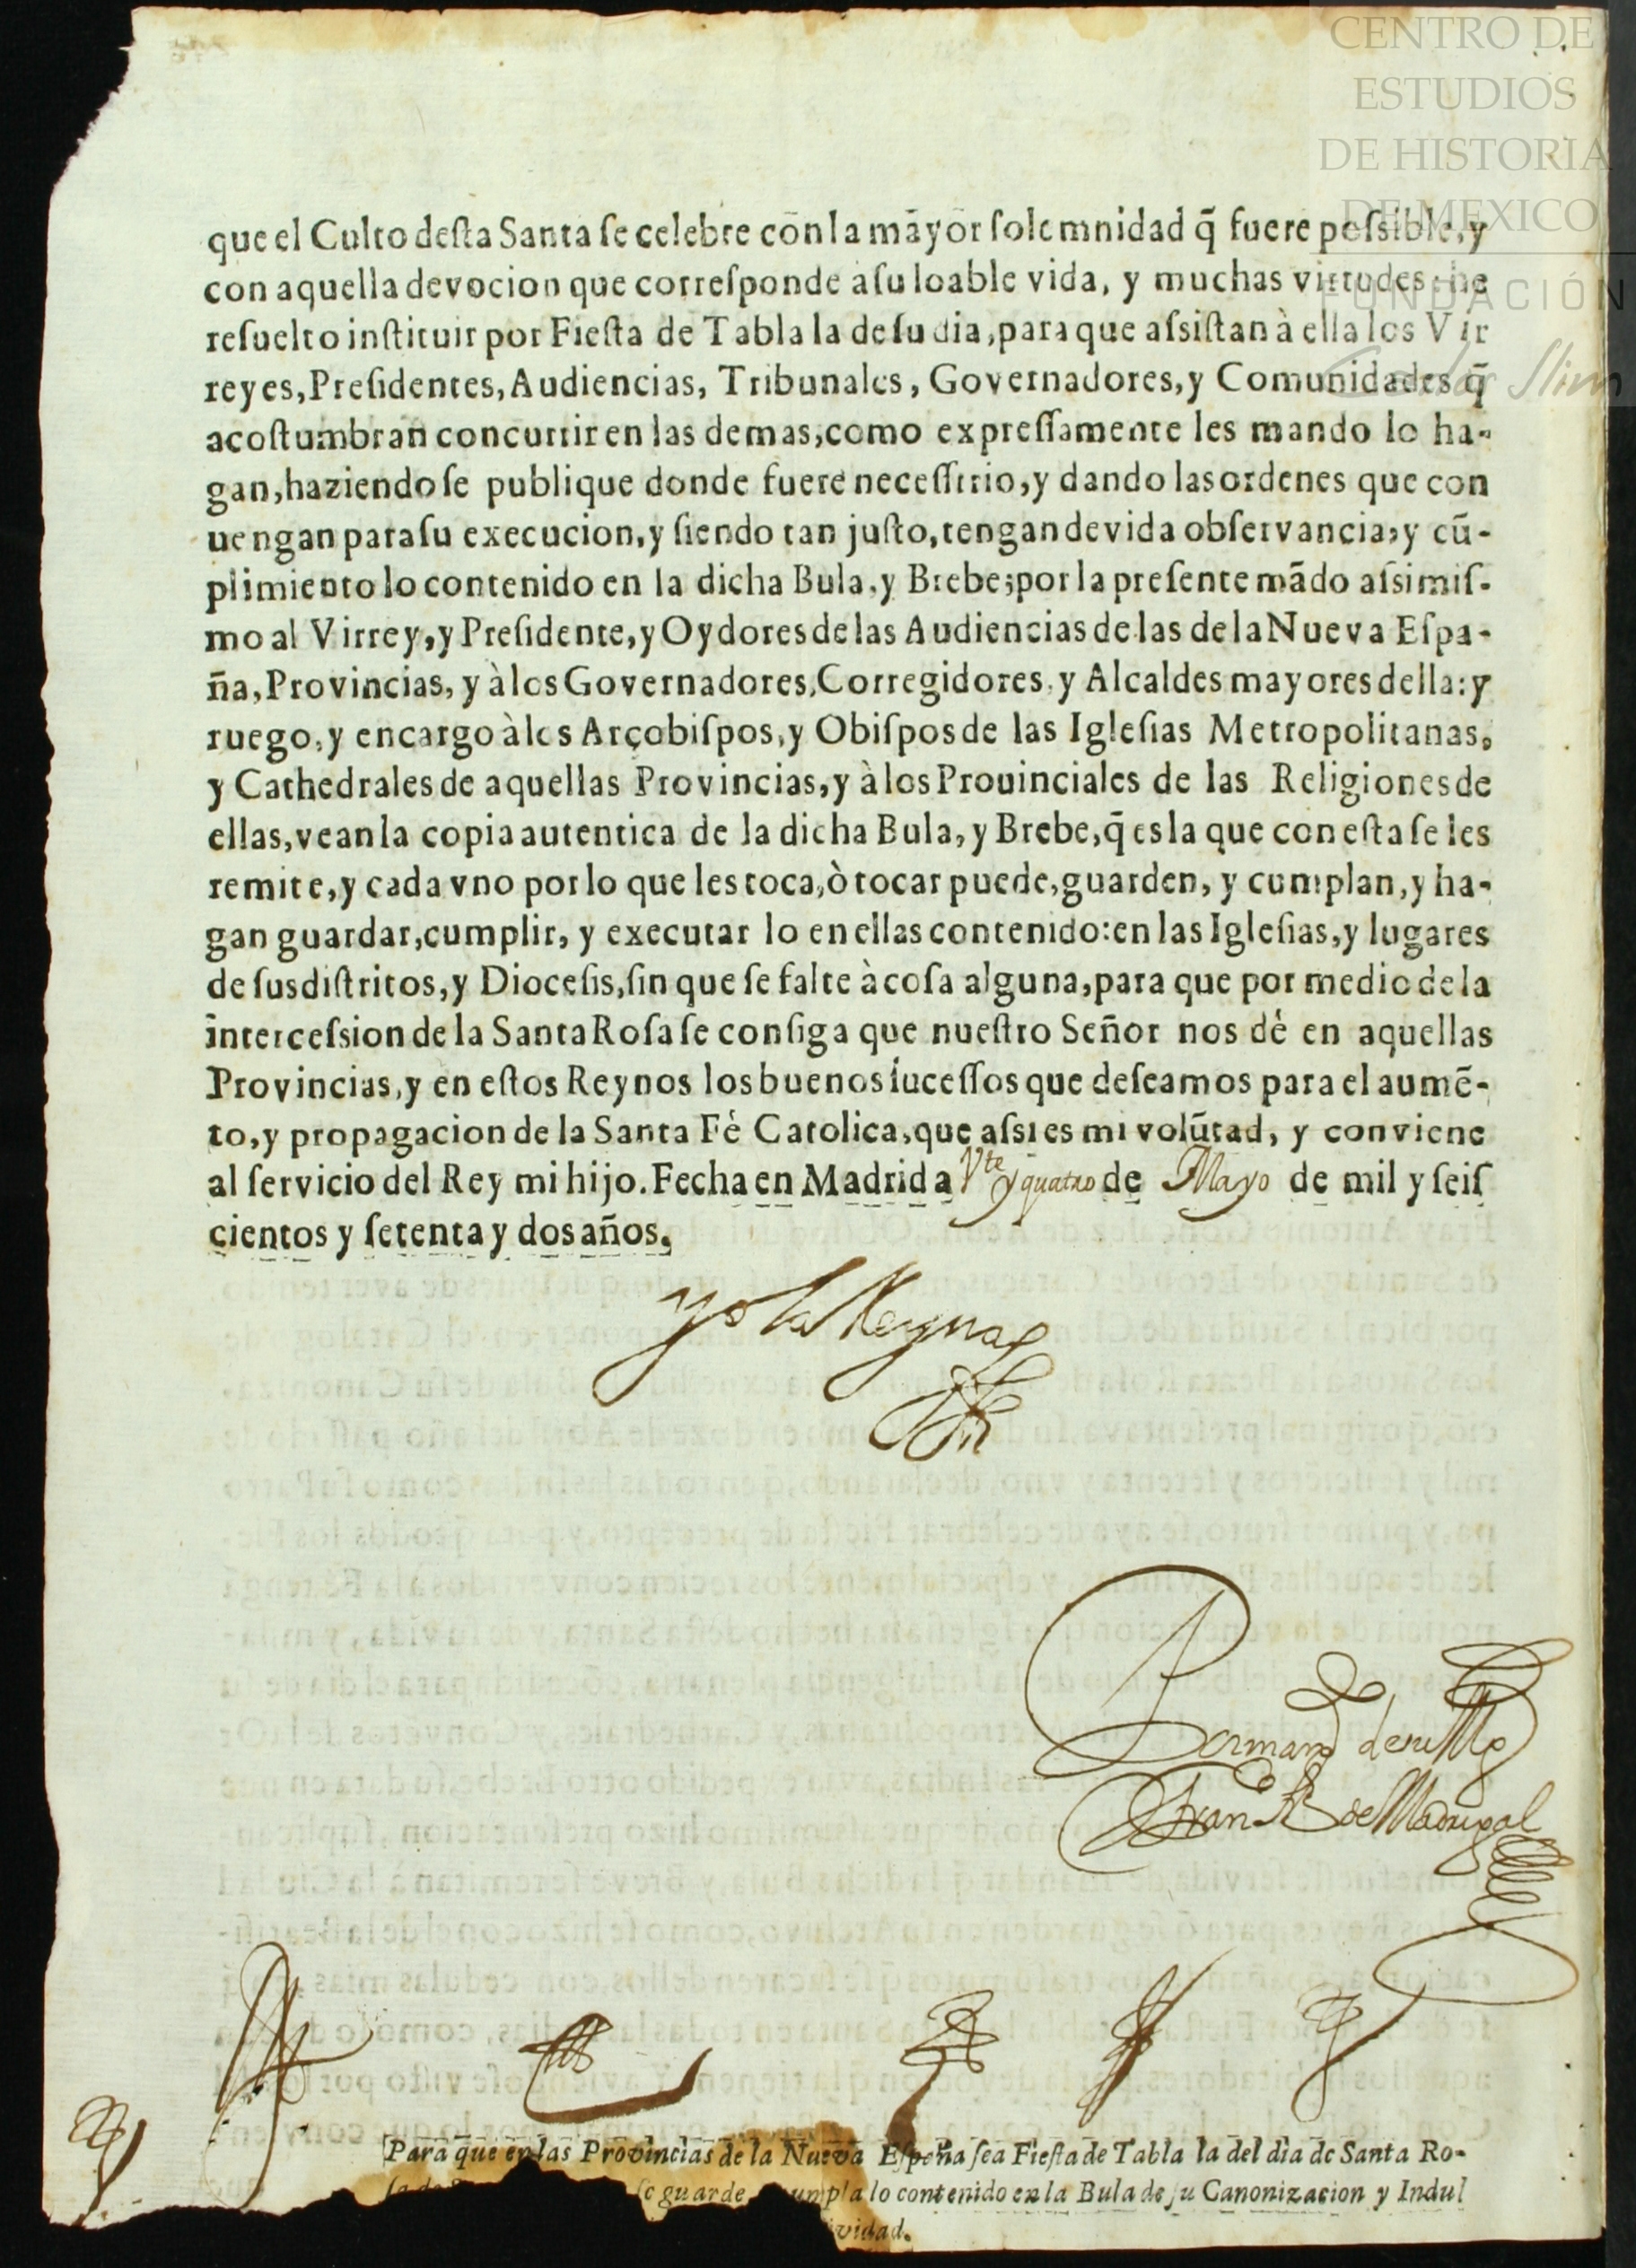 CENTRO DE
ESTUDIOS
DE HISTORIA
DE MEXICO
FUNDACIÓN
Carlos Slim
que el Culto desta Santa se celebre con la mayor solemnidad q̃ fuere possible, y
con aquella devocion que corresponde a su loable vida, y muchas virtudes: he
resuelto instituir por Fiesta de Tabla la de su dia, para que assistan à ella los Vir
reyes, Presidentes, Audiencias, Tribunales, Governadores, y Comunidades q̃
acostumbran concurrir en las demas, como expressamente les mando lo ha-
gan, haziendo se publique donde fuere necessrrio, y dando las ordenes que con
uengan para su execucion, y siendo tan justo, tengan devida observancia, y cũ-
plimiento lo contenido en la dicha Bula, y Brebe; por la presente mãdo assimis-
mo al Virrey, y Presidente, y Oydores de las Audiencias de las de la Nueva Espa-
ña, Provincias, y à los Governadores, Corregidores, y Alcaldes mayores della: y
ruego, y encargo à los Arçobispos, y Obispos de las Iglesias Metropolitanas,
y Cathedrales de aquellas Provincias, y à los Prouinciales de las Religiones de
ellas, vean la copia autentica de la dicha Bula, y Brebe, q̃ es la que con esta se les
remite, y cada vno por lo que les toca, ò tocar puede, guarden, y cumplan, y ha-
gan guardar, cumplir, y executar lo en ellas contenido: en las Iglesias, y lugares
de sus distritos, y Diocesis, sin que se falte à cosa alguna, para que por medio de la
intercession de la Santa Rosa se consiga que nuestro Señor nos dé en aquellas
Provincias, y en estos Reynos los buenos sucessos que deseamos para el aumẽ-
to, y propagacion de la Santa Fè Catolica, que assi es mi volũtad, y conviene
al servicio del Rey mi hijo. Fecha en Madrid a Vte y quatro de Mayo de mil y seis
cientos y setenta y dos años.
Yo la Reyna
Fran de Madrigal
Para que en las Provincias de la Nueva España sea Fiesta de Tabla la del dia de Santa Ro-
se guarde lo contenido en la Bula de su Canonizacion y Indul
vidad.